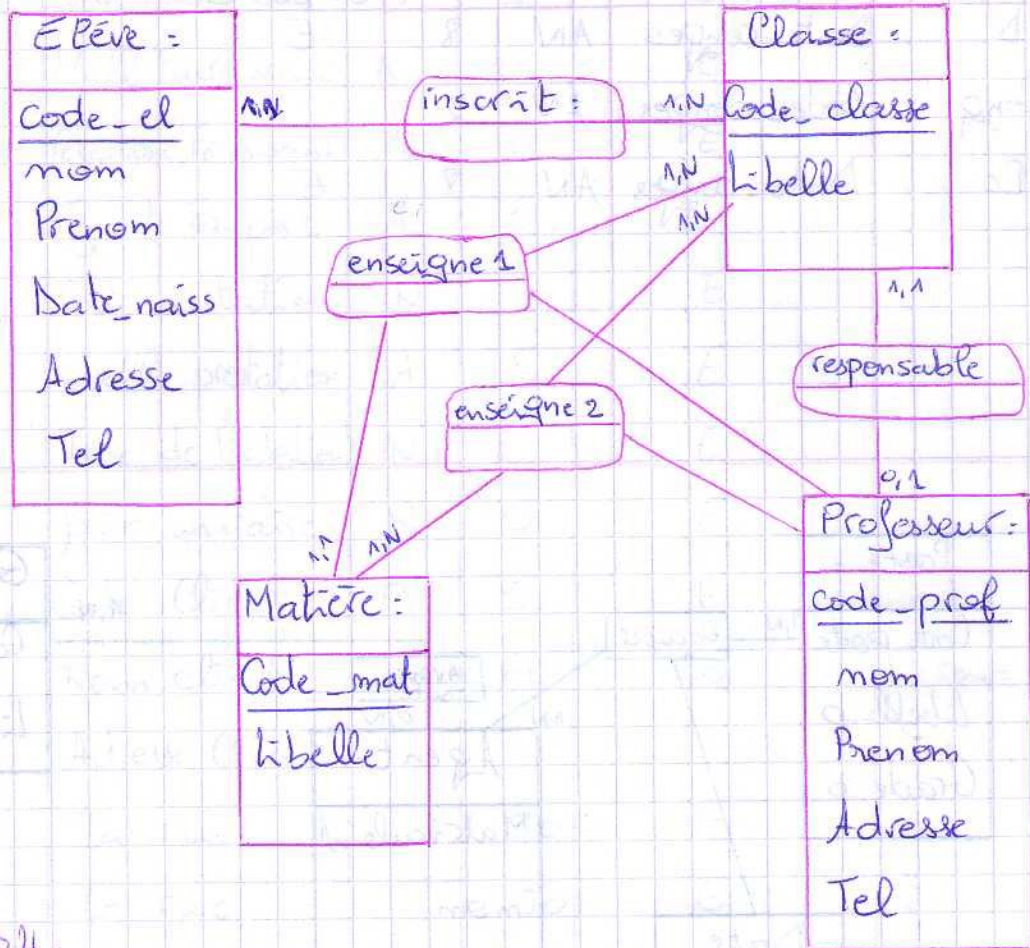 Elève :
Code_el
nom
Prenom
Date_naiss
Adresse
Tel
1,N
inscrit :
1,N
Classe :
Code_classe
Libelle
1,N
1,N
enseigne 1
enseigne 2
1,1
responsable
0,1
1,1
1,N
Matière :
Code_mat
Libelle
Professeur :
Code_prof
nom
Prenom
Adresse
Tel